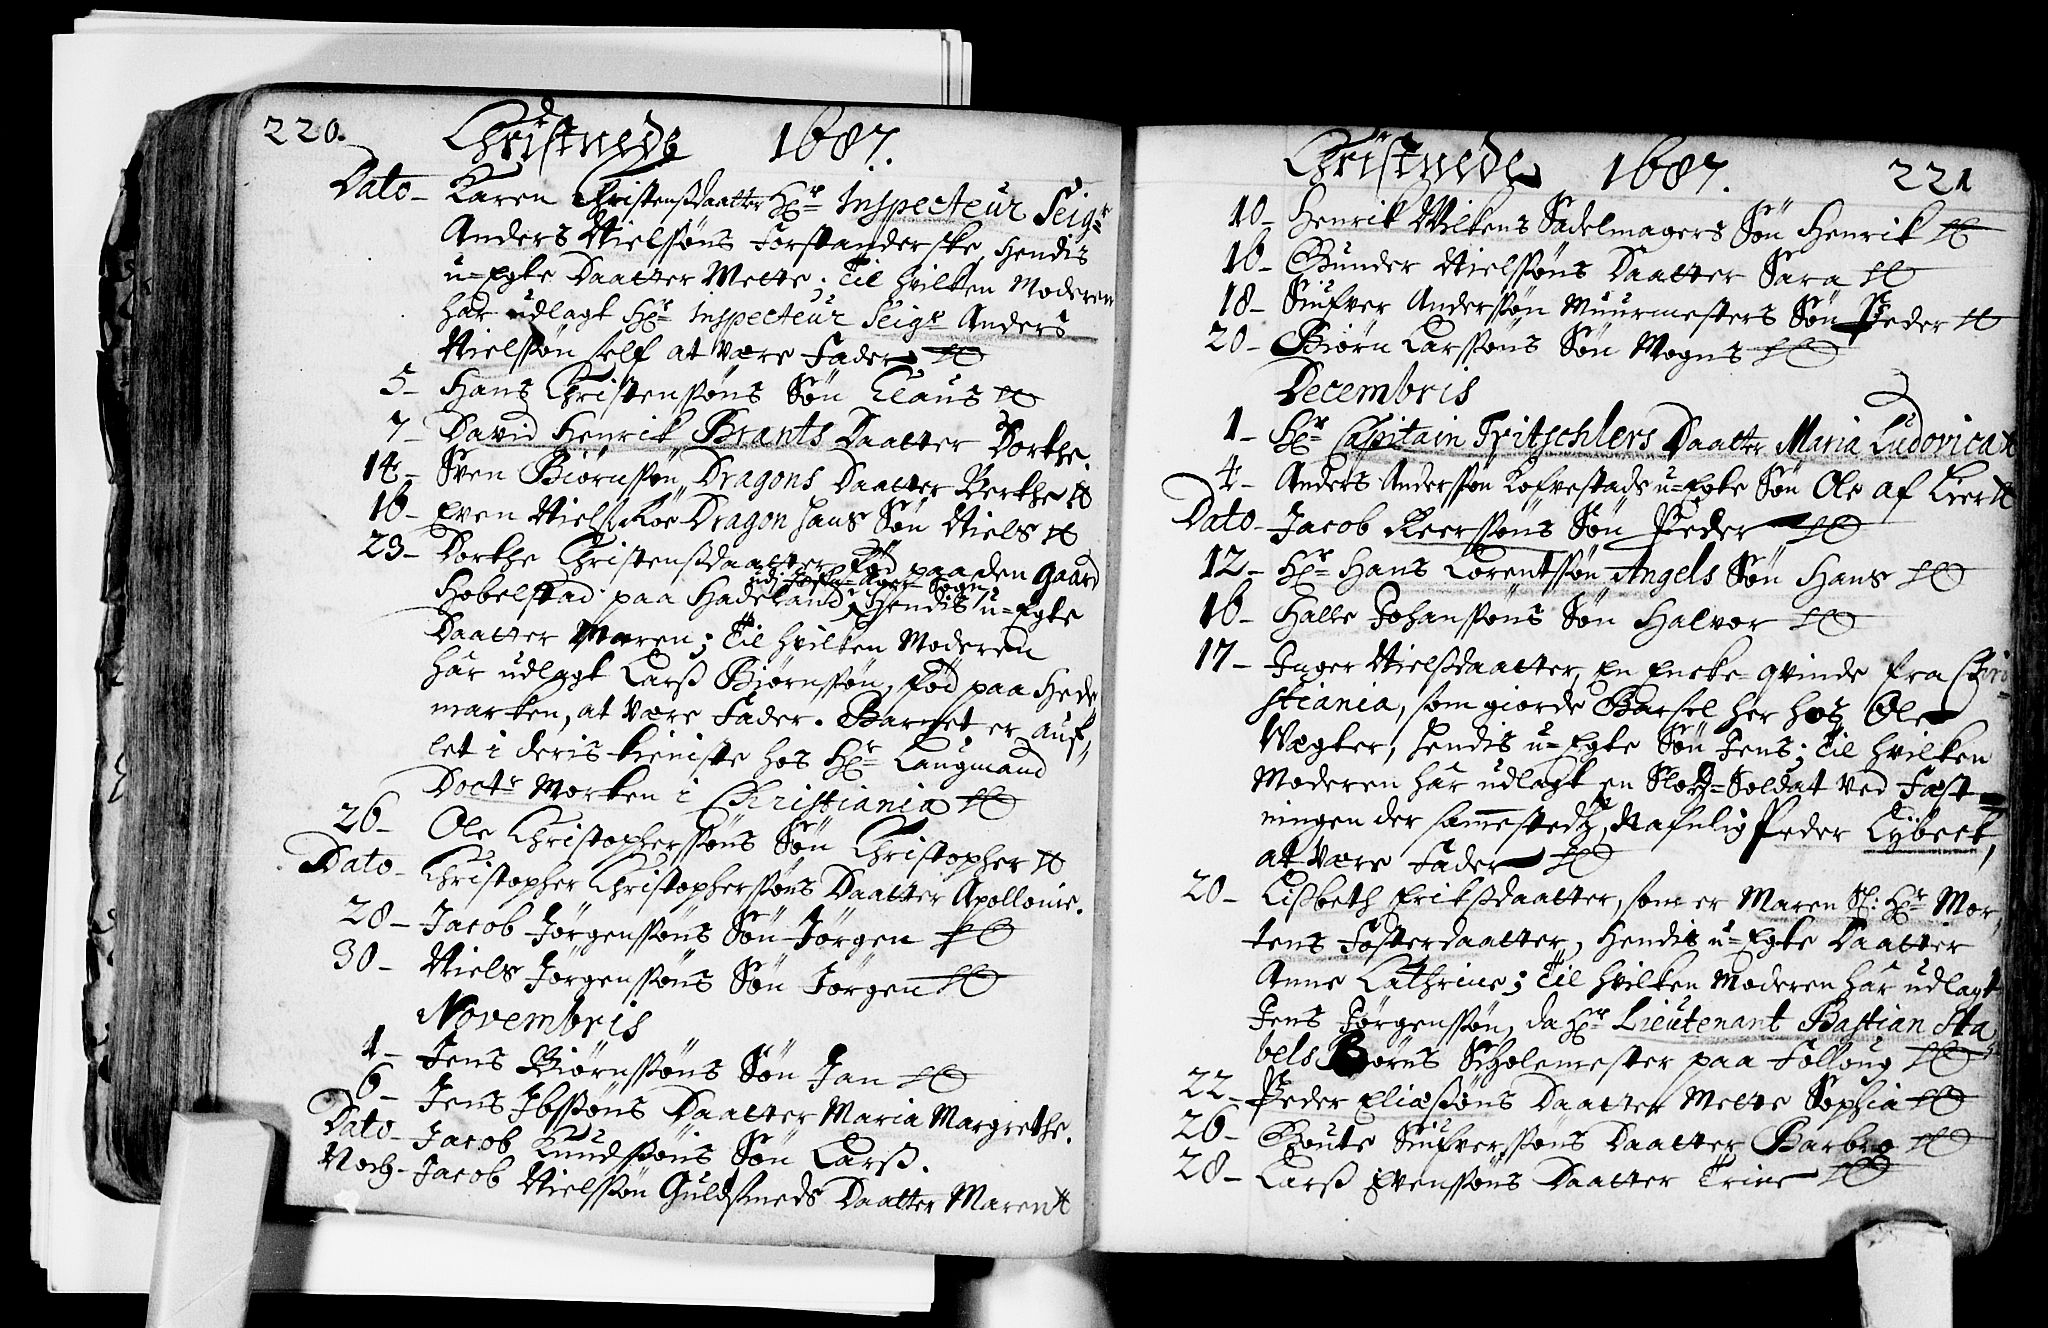 220.
Christnede 1687.
Dato - Karen Christensdaatter Hr: Inspecteur Seigr
Anders Nielssøns Forstanderske, hendis
u=Egte Daatter Mette; Til hvilken Moderen
har udlagt Hr: Inspecteur Seigr Anders
Nielssøn self at være Fader.
5 - Hans Christenssøns Søn Claus
7 - David Henrik Brants Daatter Dorthe.
14 - Sven Biørnssøn Dragons Daatter Berthe
16 - Even Nielss: Roe Dragon hans Søn Niels
23 - Dorthe Christensdaatter, fød paa den gaard
udj Sogn
Hobelstad paa Hadeland, Hendis u=Egte
Daatter Maren; Til hvilken Moderen
har udlagt Larss Biørnssøn, fød paa Hede
marken, at være Fader. Barnet er auf=
let i deris tieniste hos Hr Laugmand
Doctr Morken i Christiania
26 - Ole Christopherssøns Søn Christopher
Dato - Christopher Christopherssøns Daatter Apollonie.
28 - Jacob Jørgenssøns Søn Jørgen
30 - Niels Jørgenssøns Søn Jørgen
Novembris
1 - Jens Biørnssøns Søn Jan
6 - Jens Ibssøns Daatter Maria Margrethe.
Dato - Jacob Knudssøns Søn Larss.
Noch - Jacob Nielssøn Guldsmeds Daatter Maren
Christnede 1687. 221
10 - Henrik Wilkens Sadelmagers Søn Henrik
16 - Gunder Nielssøns Daatter Sara
18 - Siufver Anderssøn Muurmesters Søn Peder
20 - Biørn Larssøns Søn Mogns
Decembris
1 - Hr Capitain Fritschlers Daatter Maria Ludovica
4 - Anders Anderssøn Kofvestads u=Egte Søn Ole af Lier
Dato - Jacob Keerssøns Søn Peder
12 - Hr Hans Lorentssøn Angels Søn Hans
16 - Halle Johanssøns Søn Halvor
17 - Inger Nielsdaatter, en Encke-qvinde fra Chri=
stiania, som giorde Barsel her hos Ole
Vægter, hendis u=Egte Søn Jens; Til hvilken
Moderen har udlagt en Slotz=Soldat ved Fæst=
ningen der sammestedtz, Nafnlig Peder Lybeck,
at være Fader
20 - Lisbeth Eriksdaatter, som er Maren Sl: Hr Mor
tens Fosterdaatter, hendis u=Egte Daatter
Anne Cathrine; Til hvilken Moderen har udlagt
Jens Jørgenssøn, da Hr Lieutenant Bastian Sta
bels Børns Skolemester paa Folloug
22 - Peder Eliæssøns Daatter Mette Sophia
26 - Goute Siufverssøns Daatter Barbro
28 - Larss Evenssøns Daatter Trine